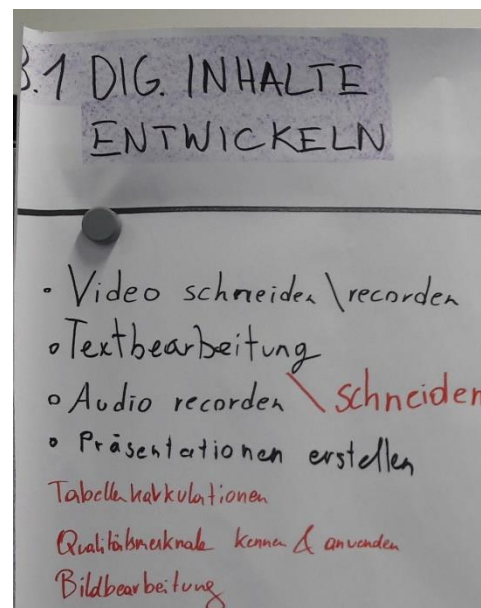 3.1 DIG. INHALTE
ENTWICKELN
• Video schneiden \ recorden
• Textbearbeitung
• Audio recorden \ schneiden
• Präsentationen erstellen
Tabellenkalkulationen
Qualitätsmerkmale kennen & anwenden
Bildbearbeitung